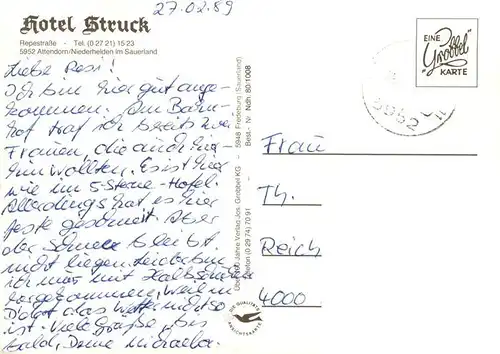 27.02.89
Hotel Struck
Repestraße - Tel. (0 27 21) 15 23
5952 Attendorn/Niederhelden im Sauerland
Liebe Resi!
Ich bin hier gut ange-
kommen. Am Bahn-
hof traf ich bereits zwei
Frauen, die auch hier-
hin wollten. Es ist hier
wie im 5-Sterne-Hotel.
Allerdings hat es hier
feste geschneit. Aber
der Schnee bleibt
nicht liegen. Leider bin
ich nur mit Halbschuhen
hergekommen, weil in
D'dorf das Wetter nicht so
ist. Viele Grüße, bis
bald, Deine Michaela.
Über 50 Jahre Verlag Jos. Grobbel KG - 5948 Fredeburg (Sauerland)
Telefon (0 29 74) 70 91 - Best.-Nr. Ndh. 80/1008
DIE QUALITÄTS
ANSICHTSKARTE
EINE
"Grobbel"
KARTE
5952
Frau
Th.
Reich
4000